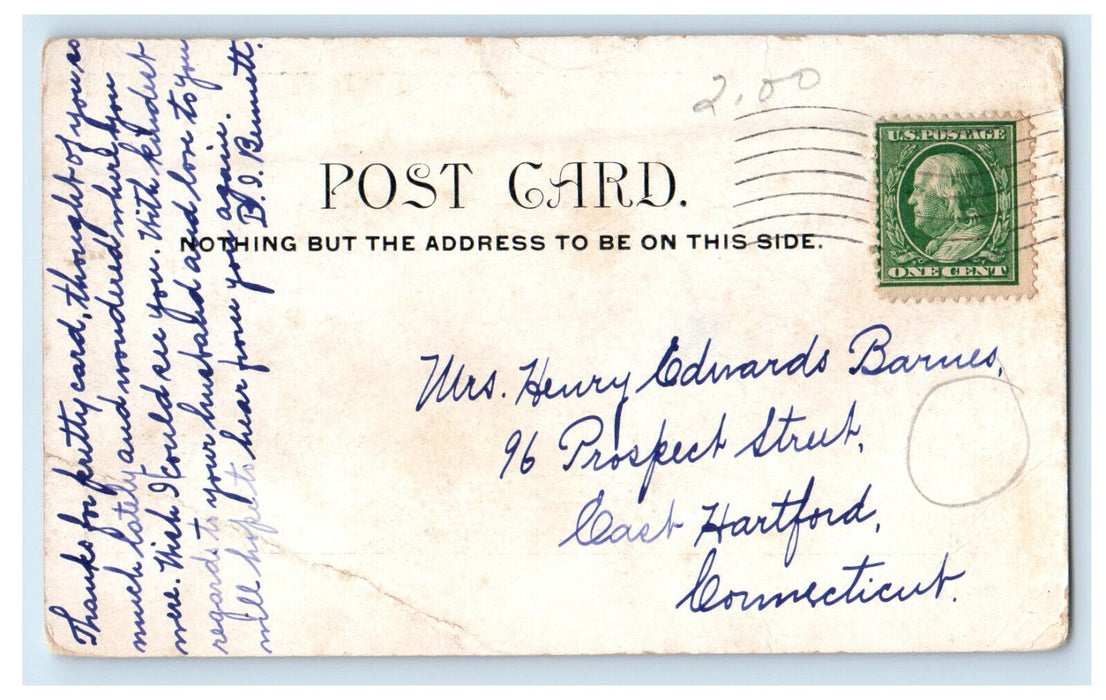 2.00
U.S. POSTAGE
POST CARD.
NOTHING BUT THE ADDRESS TO BE ON THIS SIDE.
ONE CENT
Mrs. Henry Edwards Barnes,
96 Prospect Street,
East Hartford,
Connecticut.
Thanks for pretty card, thought of you so
much lately and wondered where you
were. Wish I could see you. With kindest
regards to your husband and love to you
will hope to hear from you again.
B. I. Bennett.